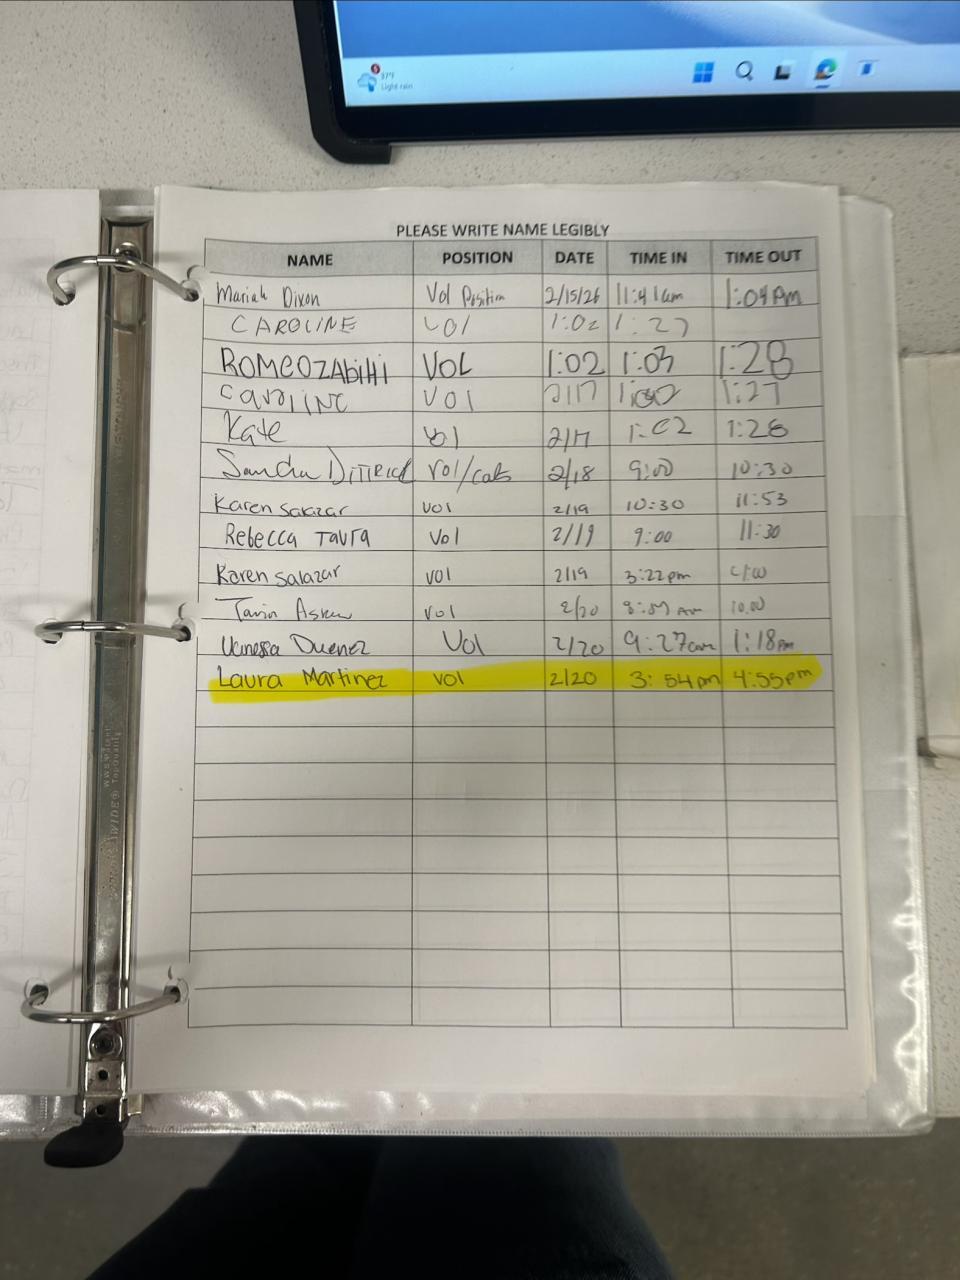 37°F
Light rain
PLEASE WRITE NAME LEGIBLY
NAME POSITION DATE TIME IN TIME OUT
Mariah Dixon Vol Position 2/15/26 11:41am 1:04pm
CAROLINE VOl 1:02 1:27
ROMEOZABIHI VOL 1:02 1:03 1:28
Caroline VOl 2/17 1:02 1:27
Kate Vol 2/17 1:02 1:28
Sandra vol/cats 2/18 9:00 10:30
Karen Salazar vol 2/19 10:30 11:53
Rebecca Tavra Vol 2/19 9:00 11:30
Karen Salazar vol 2/19 3:22pm
vol 2/20 AM 10:00
Vanessa Duenez Vol 2/20 9:27am 1:18pm
Laura Martinez vol 2/20 3:54pm 4:55pm